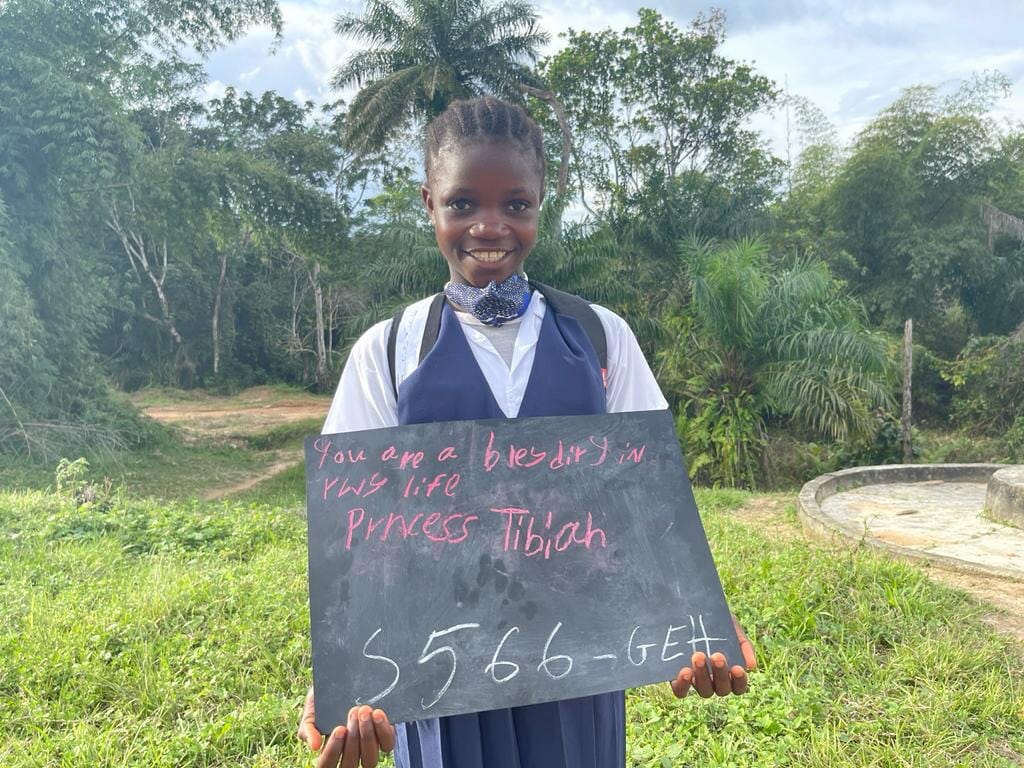 You are a breydiry in
rwy life
Prncess Tibiah
S566-GEH